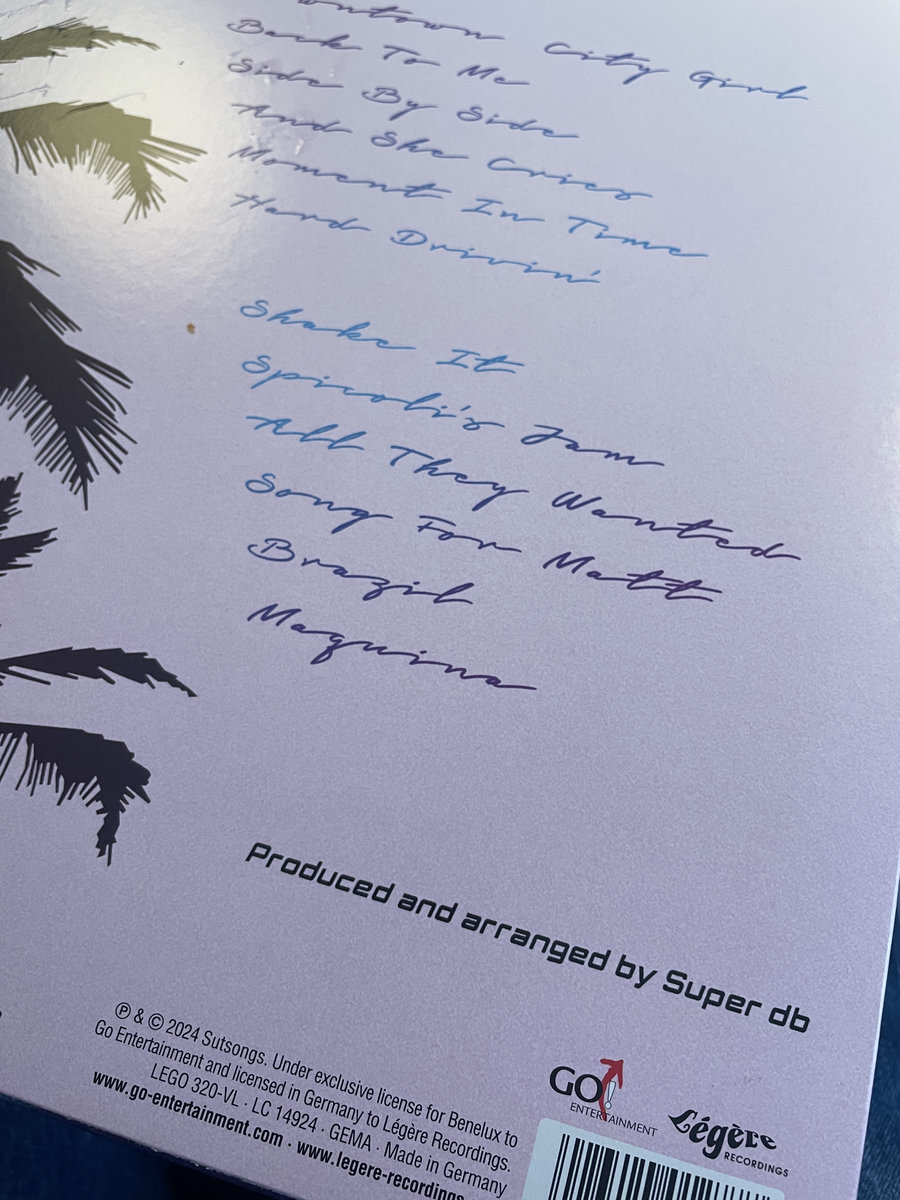 City Girl
Back To Me
Side By Side
And She Cries
Moment In Time
Hard Drivin'
Shake It
Spicoli's Jam
All They Wanted
Song For Matt
Brazil
Maquina
Produced and arranged by Super db
Ⓟ & © 2024 Sutsongs. Under exclusive license for Benelux to
Go Entertainment and licensed in Germany to Légère Recordings.
LEGO 320-VL · LC 14924 · GEMA · Made in Germany
www.go-entertainment.com · www.legere-recordings
GO!
ENTERTAINMENT
Légère
RECORDINGS